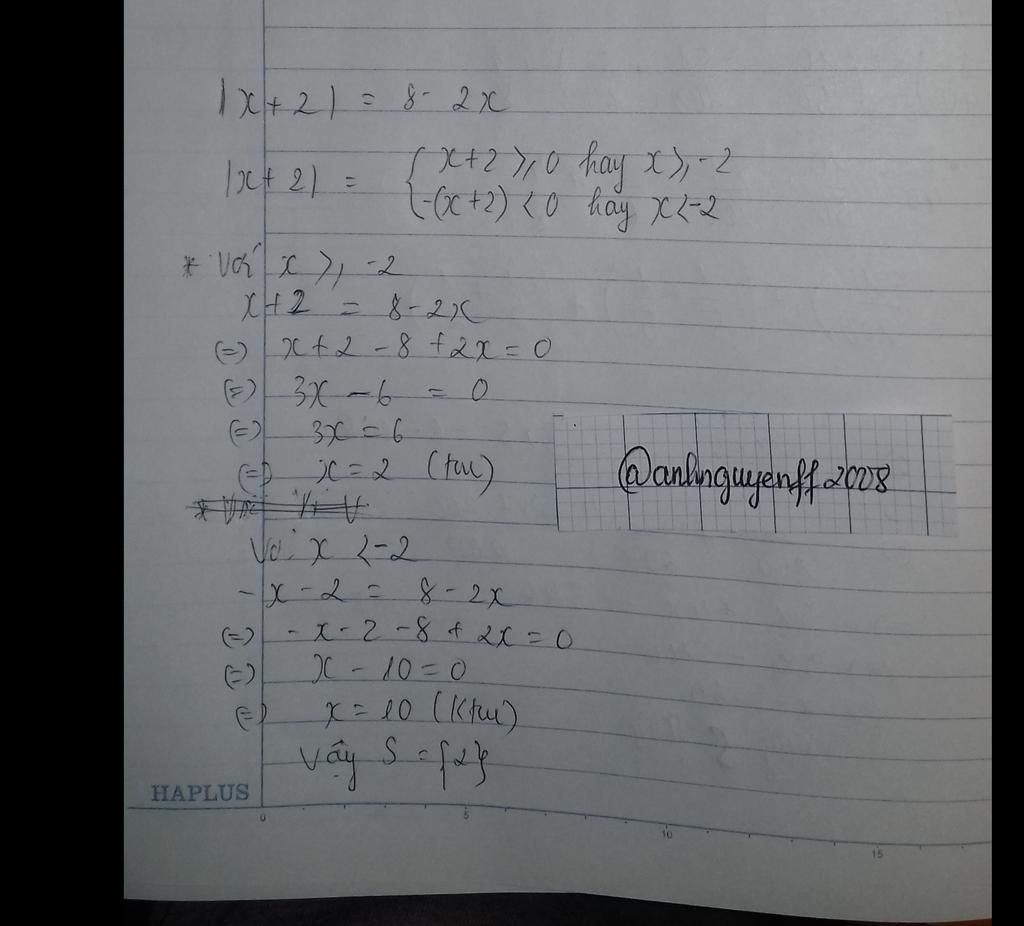 |x+2| = 8- 2x
|x+2| = { x+2 ≥ 0 hay x ≥ -2
-(x+2) < 0 hay x<-2
* Với x ≥ -2
x+2 = 8-2x
(=) x+2-8+2x=0
(=) 3x-6 = 0
(=) 3x=6
(=) x=2 (tm)
@anhnguyenff2008
Với x <-2
-x-2 = 8-2x
(=) -x-2-8+2x=0
(=) x-10=0
(=) x=10 (Ktm)
Vậy S={2}
HAPLUS
0 5 10 15